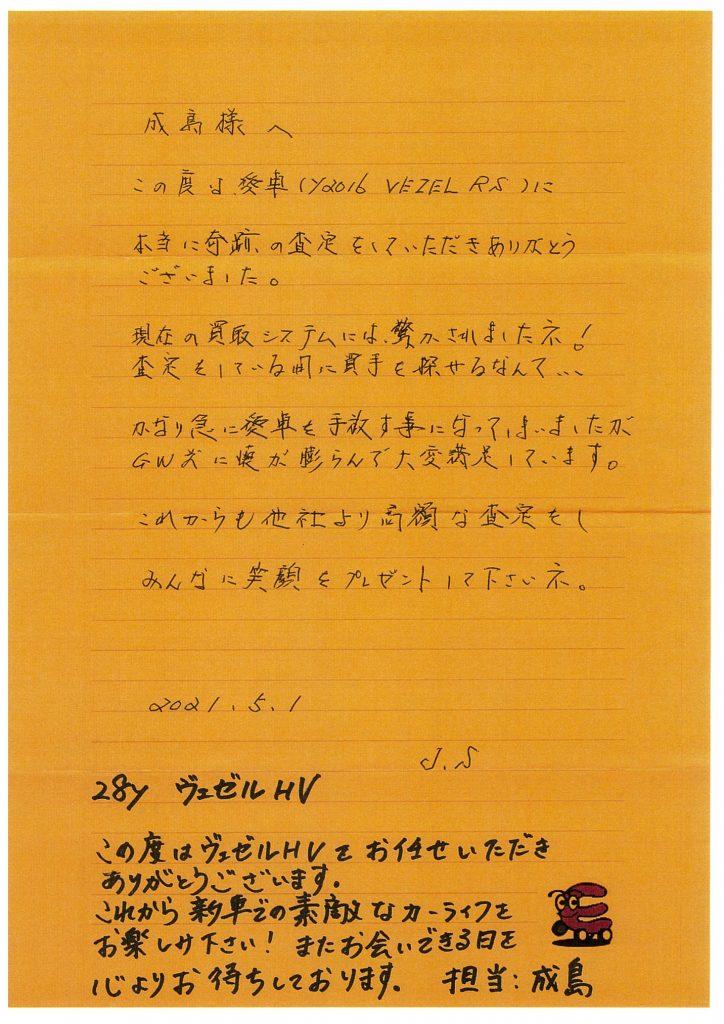 成島様へ
この度は、愛車(Y2016 VEZEL RS)に
本当に奇跡、の査定をしていただきありがとう
ございました。
現在の買取システムには、驚かされましたネ!
査定をしている間に買手を探せるなんて...
かなり急に愛車を手放す事になってしまいましたが
GW前に懐が膨らんで大変満足しています。
これからも他社より高額な査定をし
みんなに笑顔をプレゼントして下さいネ。
2021.5.1
J.S
28y ヴェゼルHV
この度はヴェゼルHVをお任せいただき
ありがとうございます。
これから新車での素敵なカーライフを
お楽しみ下さい! またお会いできる日を
心よりお待ちしております。 担当:成島